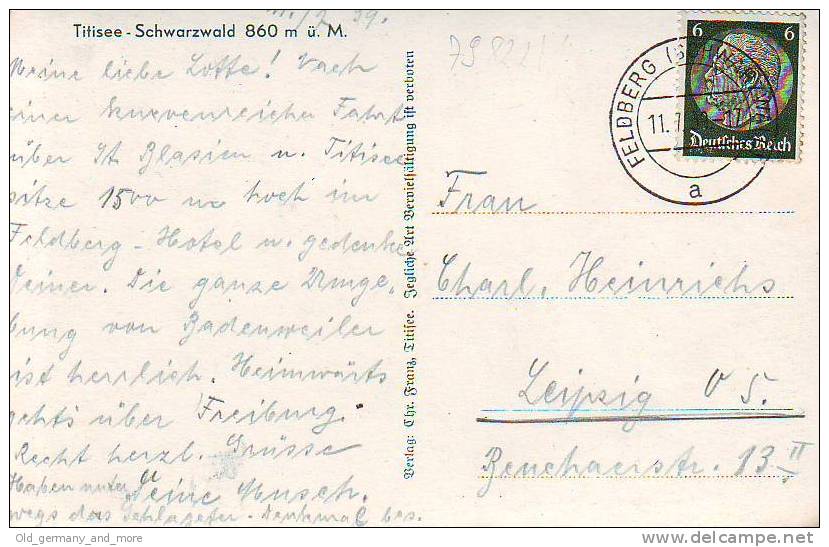 11./7. 39.
Titisee - Schwarzwald 860 m ü. M.
Meine liebe Lotte! Nach
einer kurvenreichen Fahrt
über St. Blasien u. Titisee
sitze 1500 m hoch im
Feldberg - Hotel u. gedenke
Deiner. Die ganze Umge-
bung von Badenweiler
ist herrlich. Heimwärts
gehts über Freiburg.
Recht herzl. Grüsse
Deine Musch.
Haben unter
wegs das Schlageter - Denkmal bes.
Verlag: Chr. Franz, Titisee. Jegliche Art Vervielfältigung ist verboten
79822
FELDBERG (SCHWARZW
11.7.
a
6 6
Deutsches Reich
Frau
Charl. Heinrichs
Leipzig O 5.
13 II
Old_germany_and_more
delcampe.net